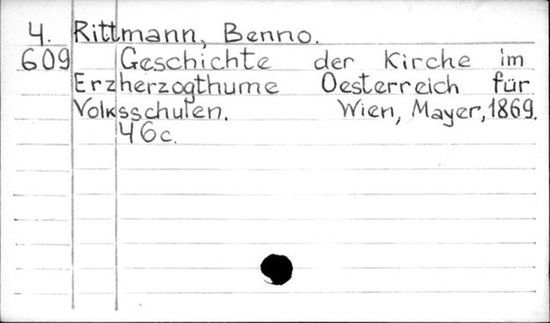 4. Rittmann, Benno.
609 Geschichte der Kirche im
Erzherzogthume Oesterreich für
Volksschulen. Wien, Mayer, 1869.
46c.